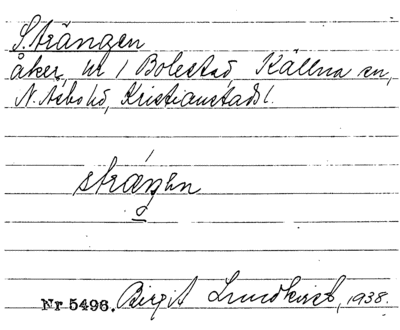 Strängen
åker, nr 1 Bolestad, Källna sn,
N. Åsbo hd, Kristianstads l.
stráŋen
Nr 5496. Birgit Lundkvist, 1938.